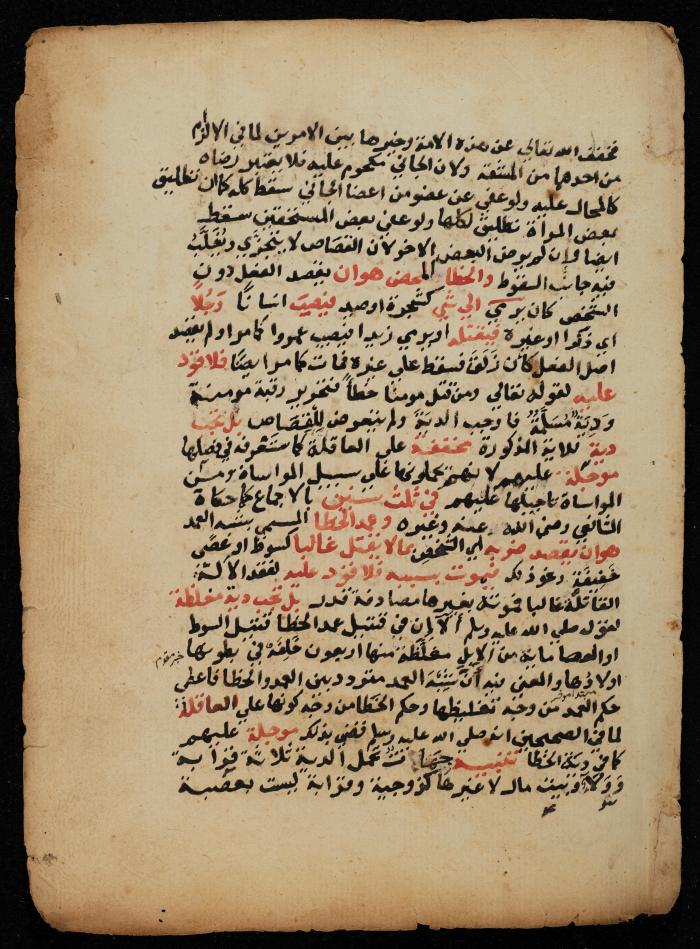 فخفف الله تعالى عن هذه الامة وخيرها بين الامرين لما في الالزام
من احدهما من المشقة ولان الجاني محكوم عليه فلا يعتبر رضاه
كالمحال عليه ولو عفى عن عضو من اعضا الجاني سقط كله كما ان تطليق
بعض المراة تطليق لكلها ولو عفى بعض المستحقين سقط
ايضا وإن لم يرض البعض الاخر لان القصاص لا يتجزي ويُغَلَّبُ
فيه جانب السقوط والخطا المحض هو ان يقصد الفعل دون
الشخص كان يرمي الي شي كشجرة او صيد فيصيب انسانًا رَجُلًا
اي ذكرا او غيره فيقتله او يرمي زيدا فيصيب عمروا كما مر او لم يقصد
اصل الفعل كان زَلَقَ فسقط علي غيره فمات كما مر ايضًا فلا قَوَد
عليه لقوله تعالي ومن قتل مومنا خطأ فتحرير رقبة مومنة
وَدِيَةٌ مُسَلَّمَةٌ فاوجب الدية ولم يتعرض لِلْقِصَاصِ بل تجب
دية للاية المذكورة مخففة على العاقلة كما ستعرفه في فصلها
موجلة عليهم لانهم يحملونها علي سبيل المواساة ومن
المواساة تاجيلها عليهم في ثلث سنين بالاجماع كما حكاه
الشافعي رضي الله عنه وغيره وعمد الخطا المسمي بشبه العمد
هو ان يقصد ضربه اي الشخص بما لا يقتل غالبا كسوط او عصًى
خفيفة ونحو ذلك فيموت بسببه فلا قَوَد عليه لفقد الالة
القاتلة غالبا فموته بغيرها مصادفة قدر بل تجب دية مغلظة
لقوله صلي الله عليه وسلم ألا إن في قتيل عمد الخطا قتيل السوط
او العصا ماية من الابل مغلظة منها اربعون خَلِفَة في بطونها
اولادها والمعني فيه أن شِبْهَ العمد متردد بين العمد والخطا فاعطي
حكم العمد من وجه تغليظها وحكم الخطا من وجه كونها علي العاقلة
لما في الصحيحين انه صلي الله عليه وسلم قضي بذلك موجلة عليهم
كما في دية الخطا تنبيه جهات تحمل الدية ثلاثة قرابة
وَوَلاء وبيت مال لا غيرها كزوجية وقرابة ليست بعصبية